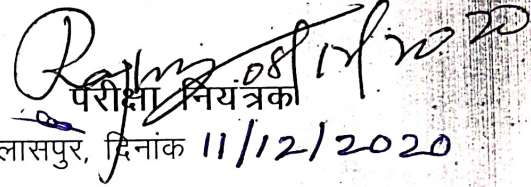 08/12/2020
परीक्षा नियंत्रक
लासपुर, दिनांक 11/12/2020